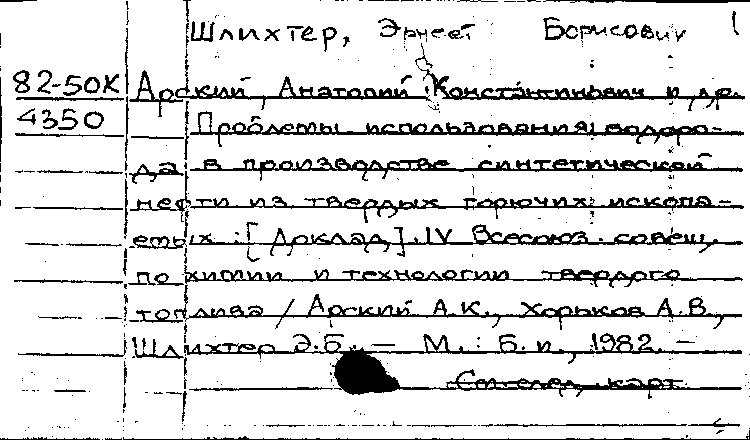 Шлихтер, Эрнест Борисович
82-50К Арский, Анатолий Константинович и др.
4350 Проблемы использования водоро-
да в производстве синтетической
нефти из твердых горючих ископа-
емых : [Доклад]. IV Всесоюз. совещ.
по химии и технологии твердого
топлива / Арский А.К., Хорьков А.В.,
Шлихтер Э.Б. – М. : Б. и., 1982. –
См. след. карт.